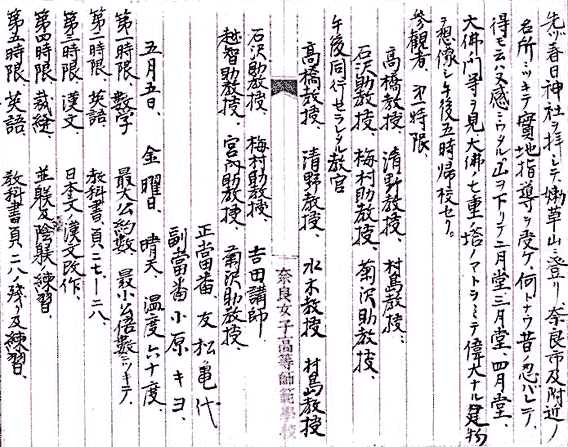 先ヅ春日神社ヲ拝シテ嫩草山ニ登リ、奈良市及附近ノ
名所ニツキテ實地指導ヲ受ケ何トナウ昔ノ忍バレテ、
得モ云ハヌ感ニウタル。山ヲ下リテ二月堂三月堂、四月堂、
大佛門等ヲ見大佛ノ七重ノ塔ノアトヲミテ偉大ナル建物
ヲ想像シ午後五時帰校セリ。
參觀者、第一時限、
高橋教授、清野教授、村島教授、
石沢助教授、梅村助教授、菊沢助教授、
午後同行セラレタル教官
高橋教授、清野教授、水木教授 村島教授
石沢助教授、梅村助教授、吉田講師、
越智助教授、宮内助教授、菊沢助教授、
奈良女子高等師範學校
正當番、友松亀代
副當番小原キヨ、
五月五日、金曜日、晴天、温度六十度、
第一時限、數学 最大公約數 最小公倍數ニツキテ、
第二時限、英語、教科書頁二七—二八、
第三時限、漢文 日本文ノ漢文改作、
第四時限、裁縫、並躾及陰躾ノ練習
第五時限、英語、教科書頁二八ノ残リ及練習、